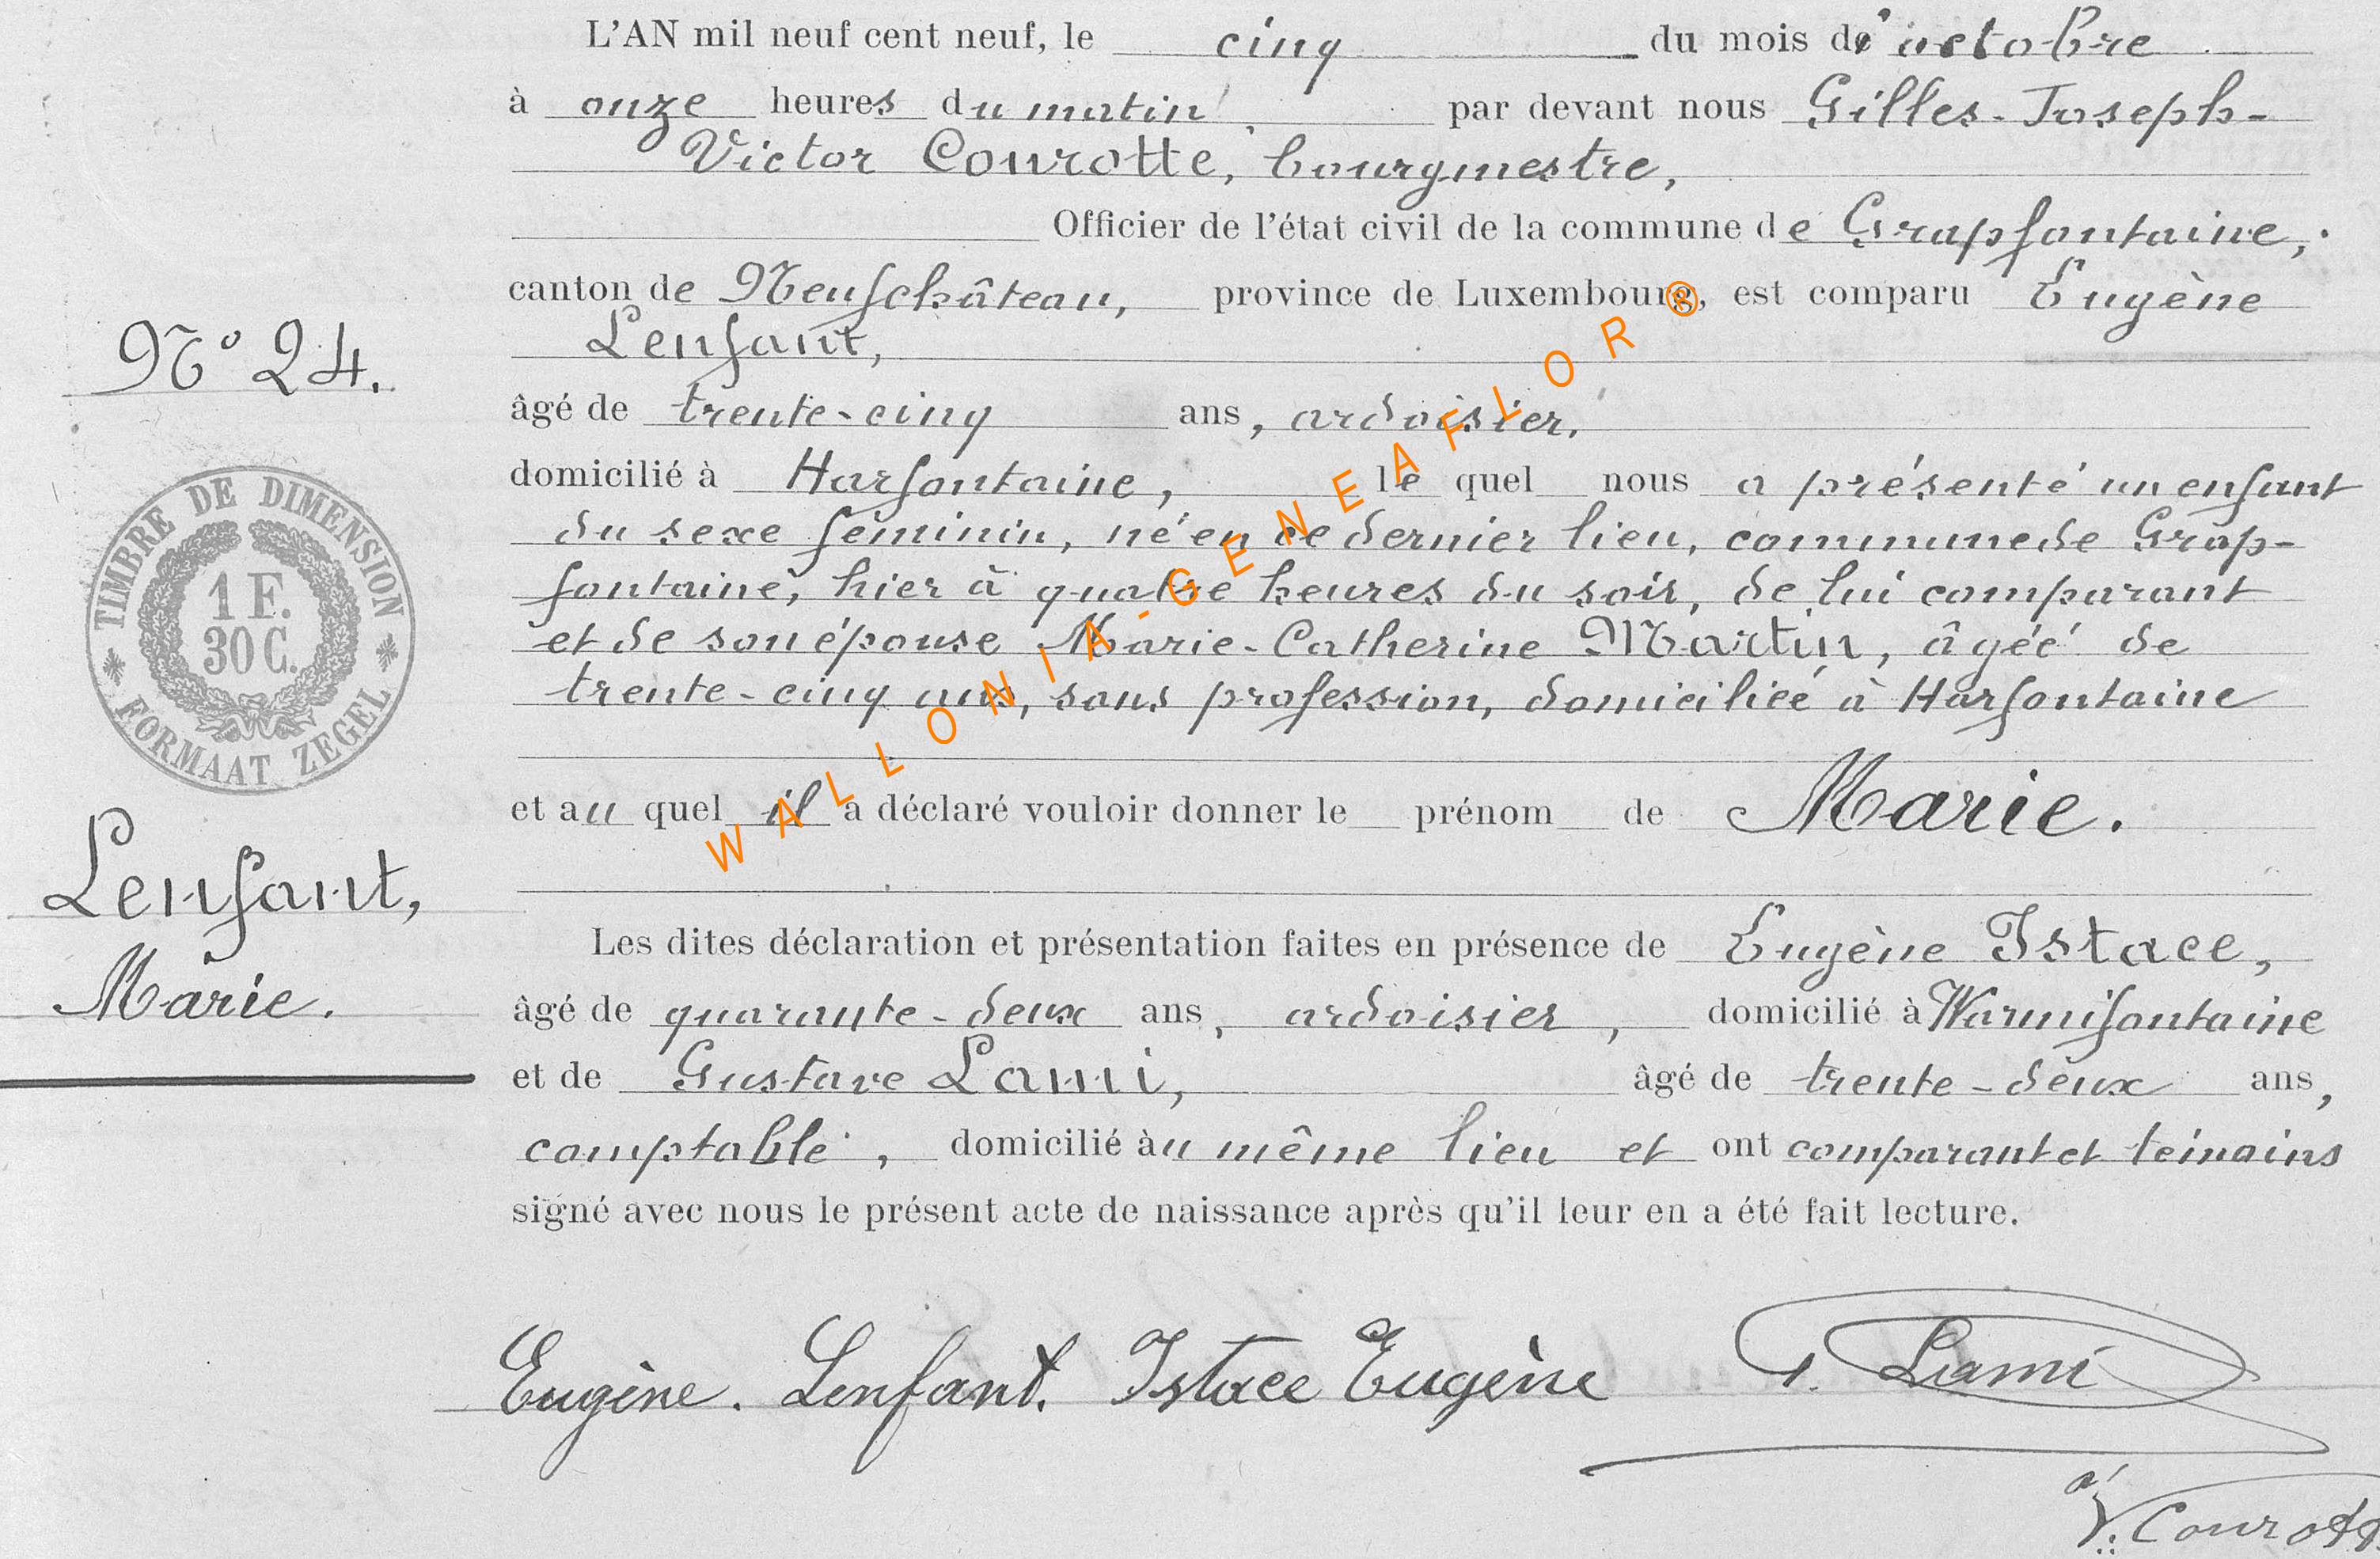 L'AN mil neuf cent neuf, le cinq du mois d'octobre
à onze heures du matin, par devant nous Gilles-Joseph-
Victor Courotte, bourgmestre,
Officier de l'état civil de la commune de Grapfontaine,
canton de Neufchâteau, province de Luxembourg, est comparu Eugène
Lenfant,
N° 24.
âgé de trente-cinq ans, ardoisier,
domicilié à Harfontaine, le quel nous a présenté un enfant
du sexe féminin, né en ce dernier lieu, commune de Grap-
fontaine, hier à quatre heures du soir, de lui comparant
et de son épouse Marie-Catherine Martin, âgée de
trente-cinq ans, sans profession, domiciliée à Harfontaine
TIMBRE DE DIMENSION
1 F.
30 C.
FORMAAT ZEGEL
et au quel il a déclaré vouloir donner le prénom de Marie.
Lenfant,
Marie.
Les dites déclaration et présentation faites en présence de Eugène Istace,
âgé de quarante-deux ans, ardoisier, domicilié à Warmifontaine
et de Gustave Lami, âgé de trente-deux ans,
comptable, domicilié au même lieu et ont comparant et témoins
signé avec nous le présent acte de naissance après qu'il leur en a été fait lecture.
Eugène. Lenfant. Istace Eugène G. Lami
V. Courotte
WALLONIA-GENEAFLOR ®